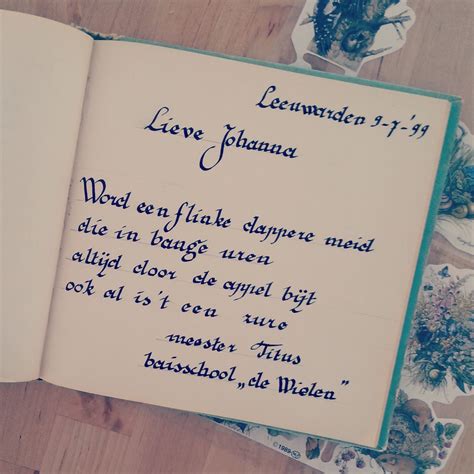 Leeuwarden 9-7-'99
Lieve Johanna
Word een flinke dappere meid
die in bange uren
altijd door de appel bijt
ook al is 't een zure
meester Titus
baisschool „de Wielen"
©1989